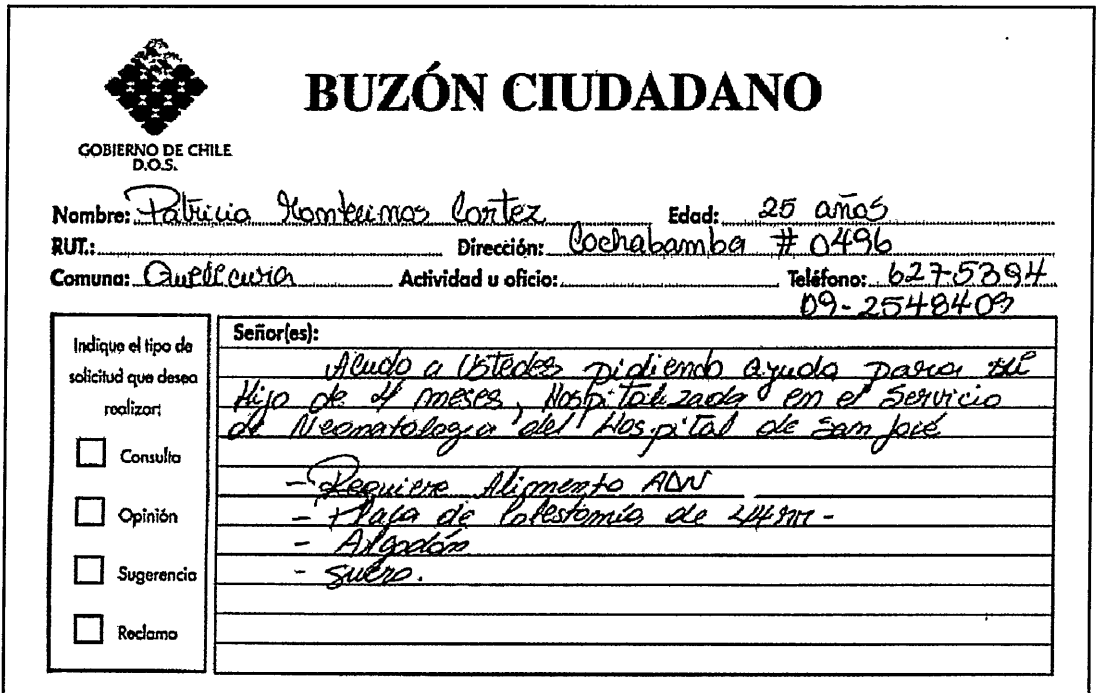 BUZÓN CIUDADANO
GOBIERNO DE CHILE
D.O.S.
Nombre: Patricia Montecinos Cortez Edad: 25 años
RUT.: Dirección: Cochabamba # 0496
Comuna: Actividad u oficio: Teléfono: 6275394
09-2548409
Indique el tipo de
solicitud que desea
realizar:
Consulta
Opinión
Sugerencia
Reclamo
Señor(es):
Acudo a Ustedes pidiendo ayuda para mi
Hijo de 4 meses, Hospitalizada en el Servicio
de Neonatologia del Hospital de San José
- Requiere Alimento ADN
- Placa de de 44 mm -
- Algodón
- Suero.